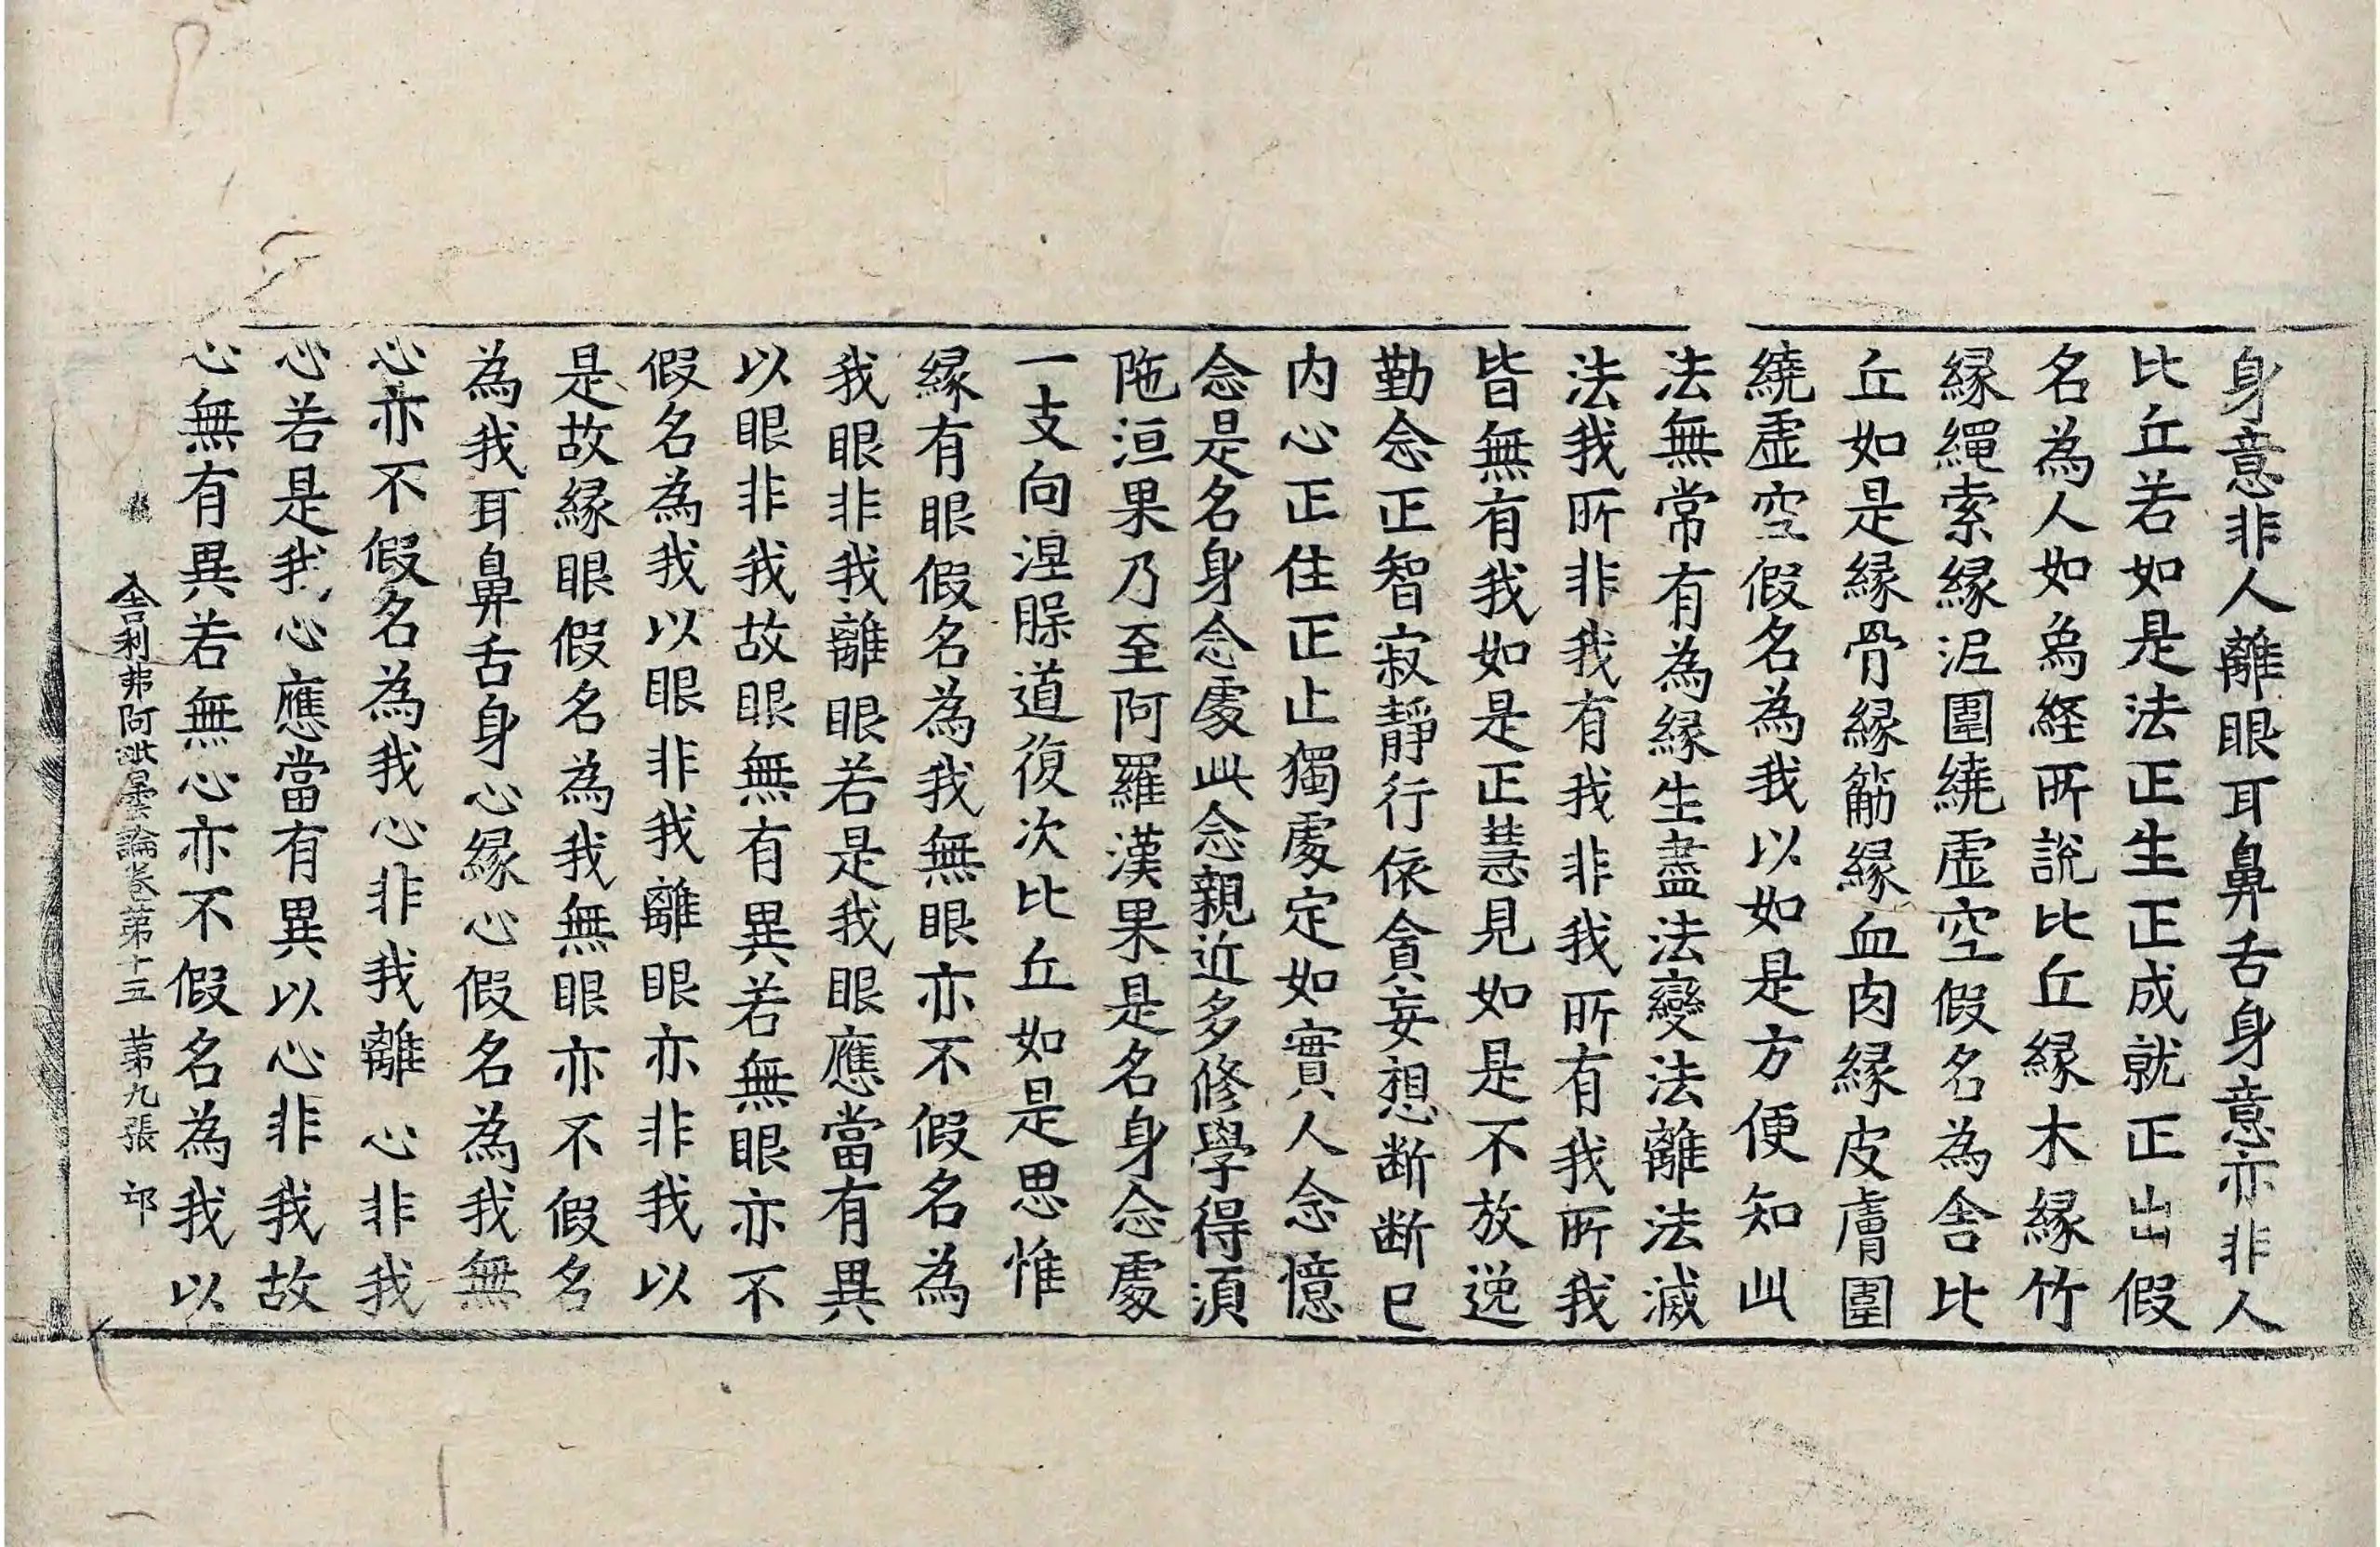 身意非人離眼耳鼻舌身意亦非人
比丘若如是法正生正成就正出假
名為人如烏經所說比丘緣木緣竹
緣繩索緣泥圍繞虛空假名為舍比
丘如是緣骨緣筋緣血肉緣皮膚圍
繞虛空假名為我以如是方便知此
法無常有為緣生盡法變法離法滅
法我所非我有我非我所有我所我
皆無有我如是正慧見如是不放逸
勤念正智寂靜行依貪妄想断断已
内心正住正止獨處定如實人念憶
念是名身念處此念親近多修學得湏
陁洹果乃至阿羅漢果是名身念處
一支向涅槃道復次比丘如是思惟
緣有眼假名為我無眼亦不假名為
我眼非我離眼若是我眼應當有異
以眼非我故眼無有異若無眼亦不
假名為我以眼非我離眼亦非我以
是故緣眼假名為我無眼亦不假名
為我耳鼻舌身心緣心假名為我無
心亦不假名為我心非我離心非我
心若是我心應當有異以心非我故
心無有異若無心亦不假名為我以
舍利弗阿毗曇論卷第十五 第九張 卭